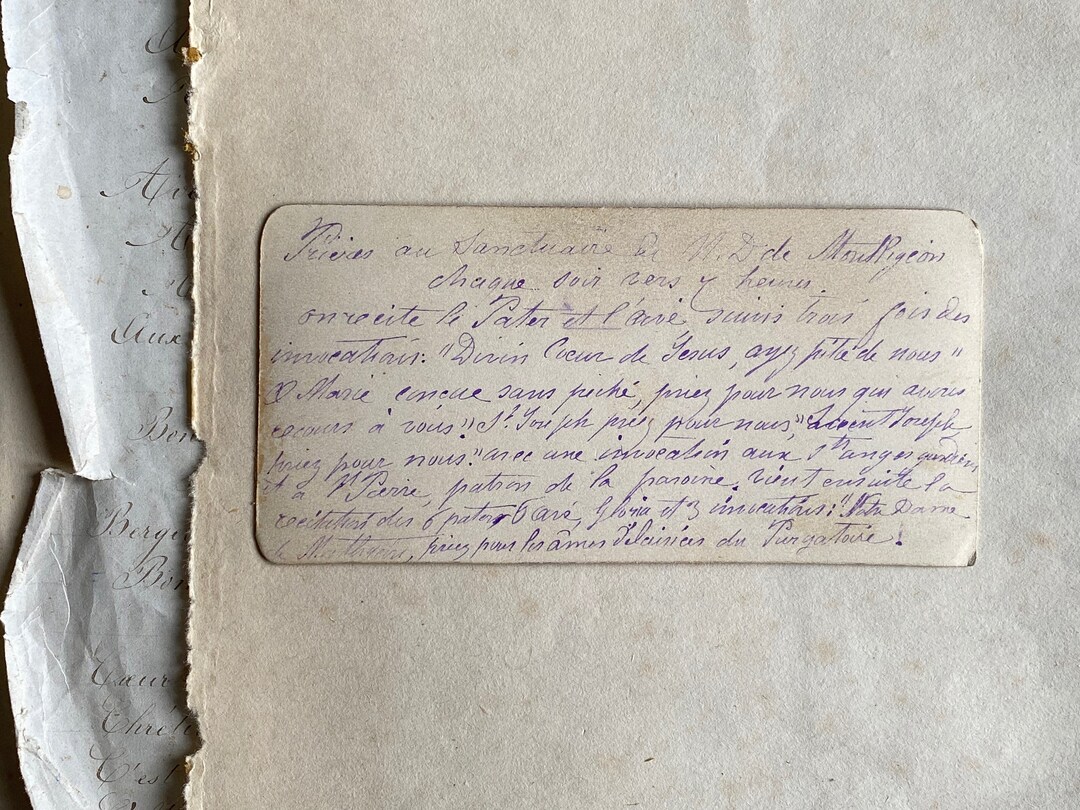 Au
Aux
Bon
Berge
Bon
Cœur
Chréti
C'est
Prières au Sanctuaire de N. D de MontRigeon
chaque soir vers 7 heures.
on recite le Pater et l'avé, suivis trois fois des
invocations: "Divin Cœur de Jesus, ayez pitié de nous"
O Marie conçue sans péché, priez pour nous qui avons
recours à vous." St Joseph priez pour nous," Saint Joseph
priez pour nous." avec une invocation aux Sts anges gardiens
et à St Pierre, patron de la paroisse. Vient ensuite la
récitation des 6 pater, 6 avé, gloria et 3 invocations: "Notre Dame
de Montligeon, priez pour les âmes délaissées du Purgatoire!